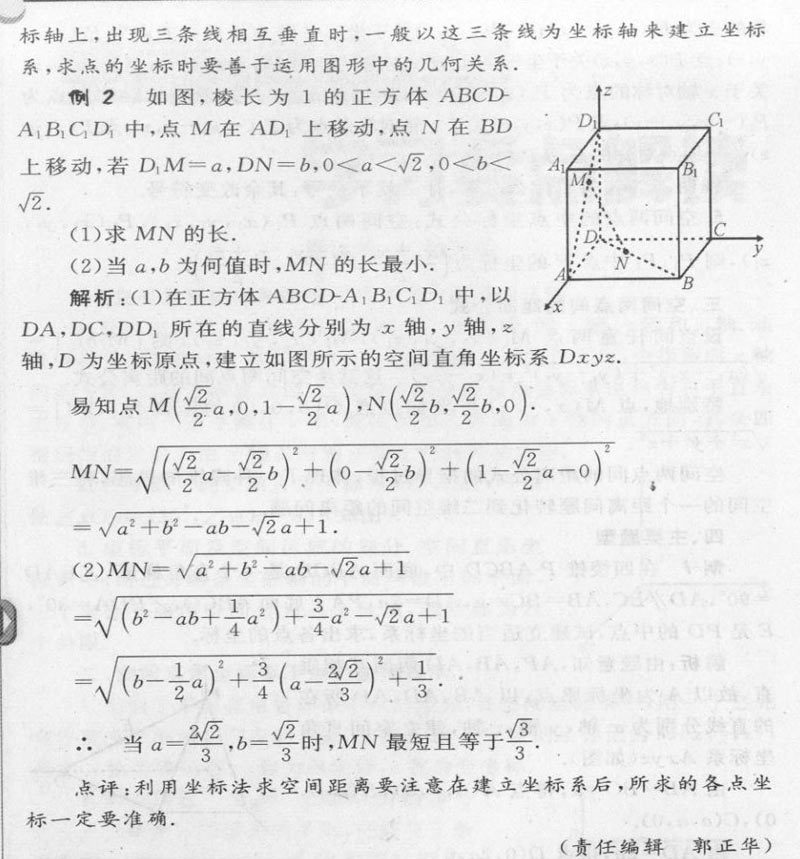 标轴上,出现三条线相互垂直时,一般以这三条线为坐标轴来建立坐标
系,求点的坐标时要善于运用图形中的几何关系.
例 2 如图,棱长为 的正方体 ABCD-
A₁B₁C₁D₁ 中,点 M 在 AD₁ 上移动,点 N 在 BD
上移动,若 D₁M=a,DN=b,0<a<√2,0<b<
√2.
(1)求 MN 的长.
(2)当 a,b 为何值时,MN 的长最小.
解析:(1)在正方体 ABCD-A₁B₁C₁D₁ 中,以
DA,DC,DD₁ 所在的直线分别为 x 轴,y 轴,z
轴,D 为坐标原点,建立如图所示的空间直角坐标系 Dxyz.
易知点 M(√2/2 a,0,1-√2/2 a),N(√2/2 b,√2/2 b,0).
MN=√((√2/2 a-√2/2 b)²+(0-√2/2 b)²+(1-√2/2 a-0)²)
=√(a²+b²-ab-√2 a+1).
(2)MN=√(a²+b²-ab-√2 a+1)
=√((b²-ab+1/4 a²)+3/4 a²-√2 a+1)
=√((b-1/2 a)²+3/4 (a-2√2/3)²+1/3).
∴ 当 a=2√2/3,b=√2/3 时,MN 最短且等于 √3/3.
点评:利用坐标法求空间距离要注意在建立坐标系后,所求的各点坐
标一定要准确.
(责任编辑 郭正华)
z
D₁
C₁
A₁
B₁
M
D
C
y
N
A
B
x